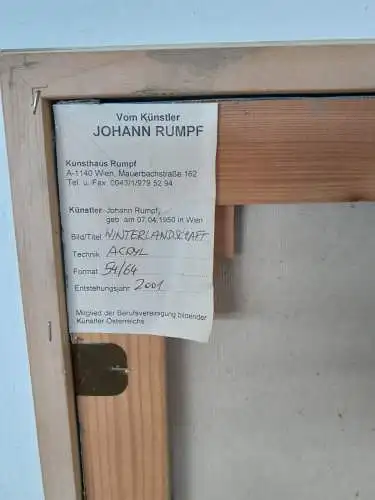 Vom Künstler
JOHANN RUMPF
Kunsthaus Rumpf
A-1140 Wien, Mauerbachstraße 162
Tel. u. Fax 0043/1/979 52 94
Künstler Johann Rumpf,
geb. am 07.04.1950 in Wien
Bild/Titel WINTERLANDSCHAFT
Technik ACRYL
Format 54/64
Entstehungsjahr 2001
Mitglied der Berufsvereinigung bildender
Künstler Österreichs